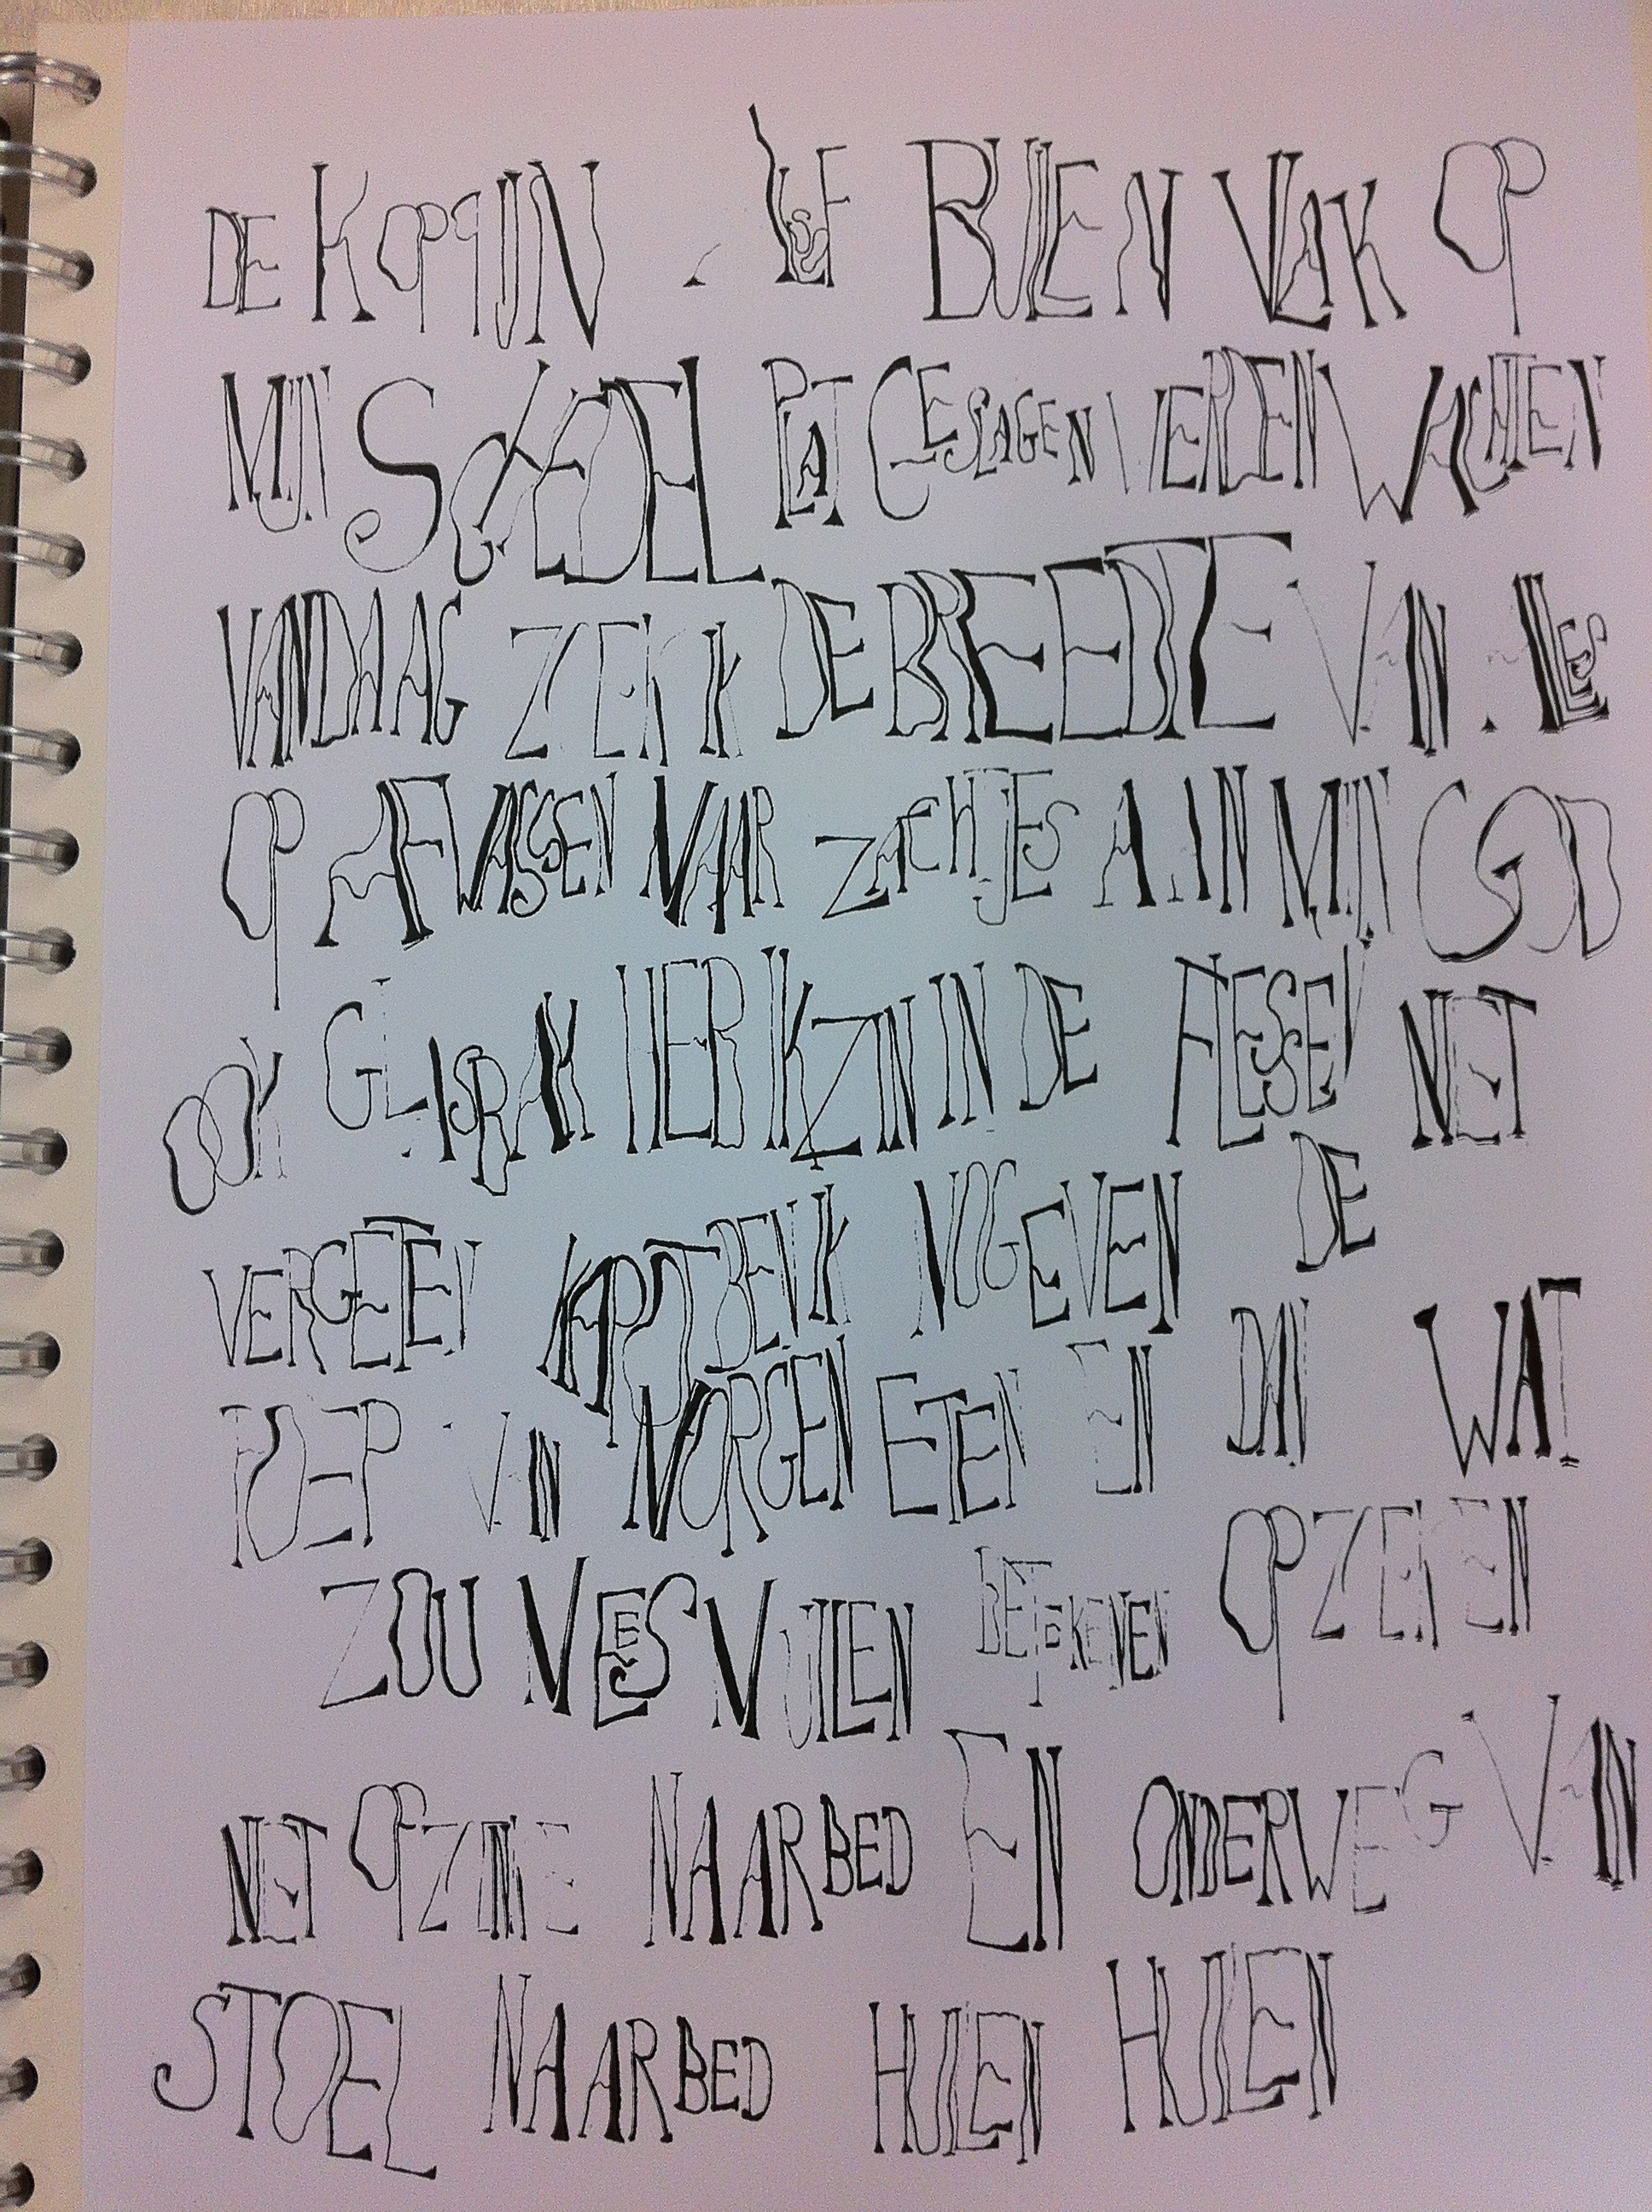 DE KOPPIJN ALSOF BUILEN VLAK OP
MIJN SCHEDEL PLAT GESLAGEN WERDEN WACHTEN
VANDAAG ZIEK IK DE BREEDTE VAN ALLES
OP AFWASSEN NAAR ZACHTJES AAN MIJN GOD
OOK GLASBAK HEB IK ZIN IN DE FLESSEN NIET
VERGETEN KAPOT BEN IK NOG EVEN DE
POEP VAN MORGEN ETEN EN DAN WAT
ZOU VLEES VUILEN BETEKENEN OPZIEKEN
NIET NAAR BED EN ONDERWEG VAN
STOEL NAAR BED HUILEN HUILEN